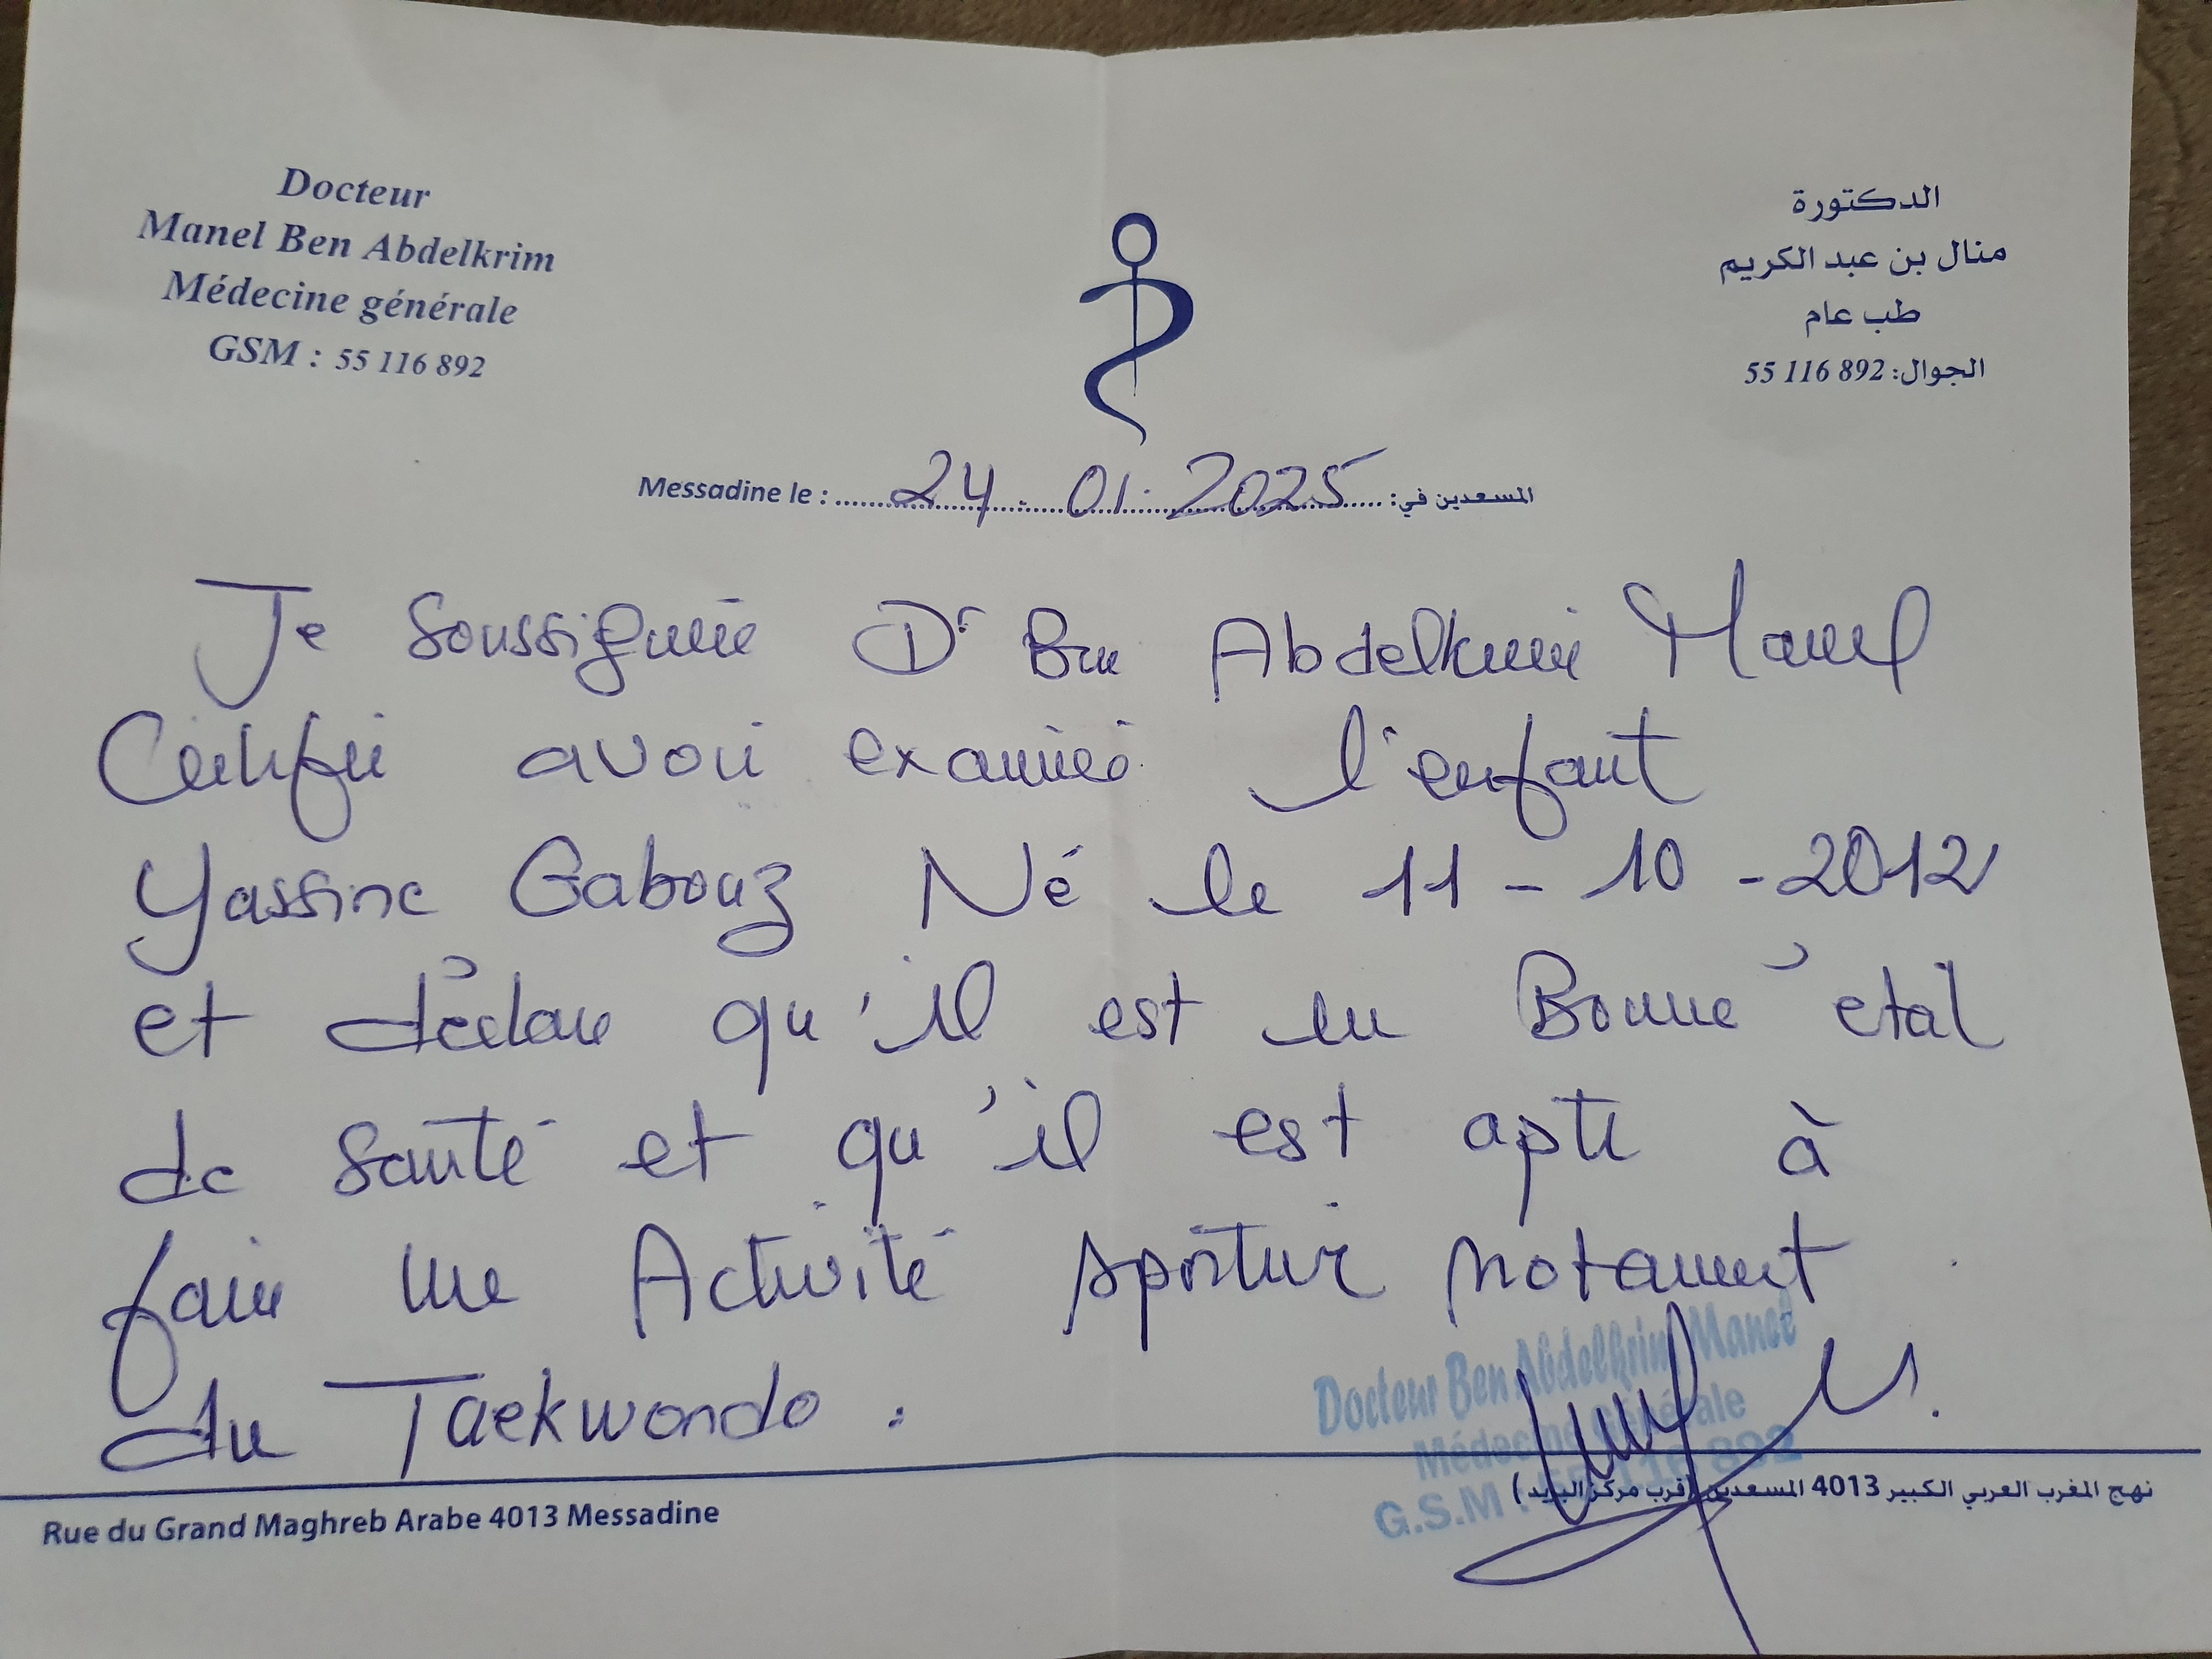 Docteur
Manel Ben Abdelkrim
Médecine générale
GSM : 55 116 892
الدكتورة
منال بن عبد الكريم
طب عام
الجوال: 55 116 892
Messadine le : 24 . 01 . 2025 المسعدين في:
Je soussignée Dr Ben Abdelkrim Manel
Certifie avoir examiné l'enfant
Yassine Gabouz Né le 11 - 10 - 2012
et déclare qu'il est en Bonne état
de santé et qu'il est apte à
faire une Activité sportive notament
du Taekwondo .
Docteur Ben Abdelkrim Manel
Médecine Générale
G.S.M : 55 116 892
Rue du Grand Maghreb Arabe 4013 Messadine
نهج المغرب العربي الكبير 4013 المسعدين (قرب مركز البريد)